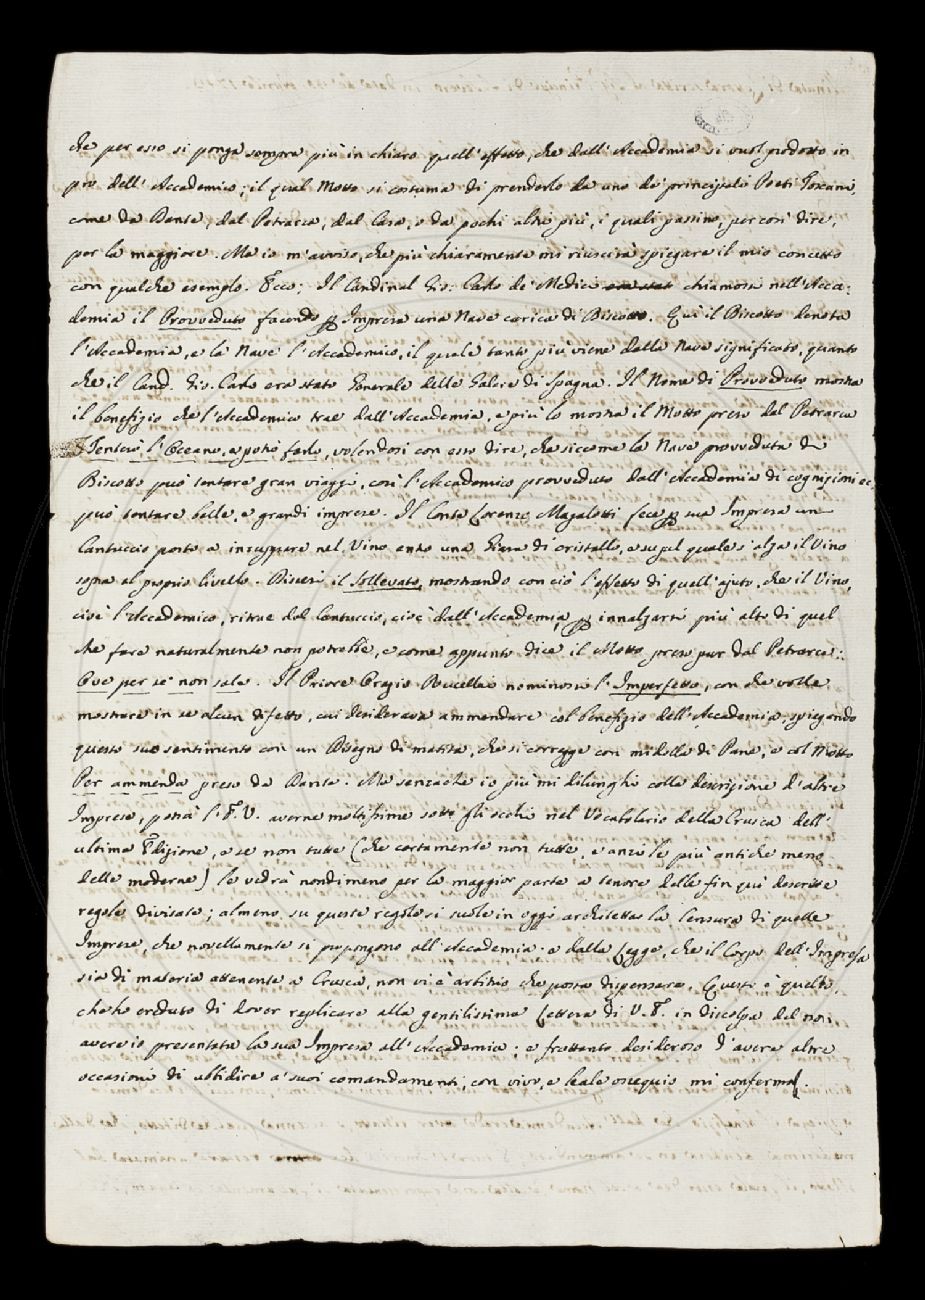 che per esso si ponga sempre più in chiaro quell'effetto, che dall'Accademia si vuol prodotto in
pro dell'Accademico; il qual Motto si costuma di prenderlo da uno de' principali Poeti Toscani,
come da Dante, dal Petrarca, dal Casa, o da pochi altri più, i quali passino, per così dire,
per la maggiore. Ma io m'avviso, che più chiaramente mi riuscirà spiegare il mio concetto
con qualche esempio. Ecco; Il Cardinal Gio: Carlo de' Medici chiamossi nell'Acca:
demia il Provveduto facendo p Impresa una Nave carica di Biscotto. Qui il Biscotto denota
l'Accademia, e la Nave l'Accademico, il quale tanto più viene dalla Nave significato, quanto
che il Card. Gio. Carlo era stato Generale delle Galere di Spagna. Il Nome di Provveduto mostra
il benefizio che l'Accademico trae dall'Accademia, e più lo mostra il Motto preso dal Petrarca
Tenterò l'Oceano, e potrò farlo, volendosi con esso dire, che siccome la Nave provveduta di
Biscotto può tentare gran viaggi, così l'Accademico provveduto dall'Accademia di cognizioni ec.
può tentare belle, e grandi imprese. Il Conte Lorenzo Magalotti fece p sua Impresa un
Cantuccio posto a inzuppare nel Vino entro una Giara di cristallo, e su pel quale s'alza il Vino
sopra al proprio livello. Dissesi il Sollevato, mostrando con ciò l'effetto di quell'ajuto, che il Vino,
cioè l'Accademico, ritrae dal Cantuccio, cioè dall'Accademia, p innalzarsi più alto di quel
che fare naturalmente non potrebbe, e come appunto dice il Motto preso pur dal Petrarca:
Ove per se non sale. Il Priore Orazio Rucellai nominossi l'Imperfetto, con che volle
mostrare in se alcun difetto, cui desiderava ammendare col benefizio dell'Accademia, spiegando
questo suo sentimento con un Disegno di matita, che si corregge con midolla di Pane, e col Motto
Per ammenda preso da Dante. Ma senzachè io più mi dilunghi colla descrizione d'altre
Imprese, potrà l'E.V. averne moltissime sotto gli occhi nel Vocabolario della Crusca dell'
ultima Edizione, e se non tutte (che certamente non tutte, e anzi le più antiche meno
delle moderne) le vedrà nondimeno per la maggior parte a tenore delle fin quì descritte
regole divisate; almeno su queste regole si suole in oggi architettar la Censura di quelle
Imprese, che novellamente si propongono all'Accademia: e dalla Legge, che il Corpo dell'Impresa
sia di materia attenente a Crusca, non vi è arbitrio che possa dispensare. Questo è quello,
che ho creduto di dover replicare alla gentilissima Lettera di V.E. in discolpa del non
avere io presentata la sua Impresa all'Accademia; e frattanto desideroso d'avere altre
occasioni di ubbidire a' suoi comandamenti, con vivo, e leale ossequio mi confermo.